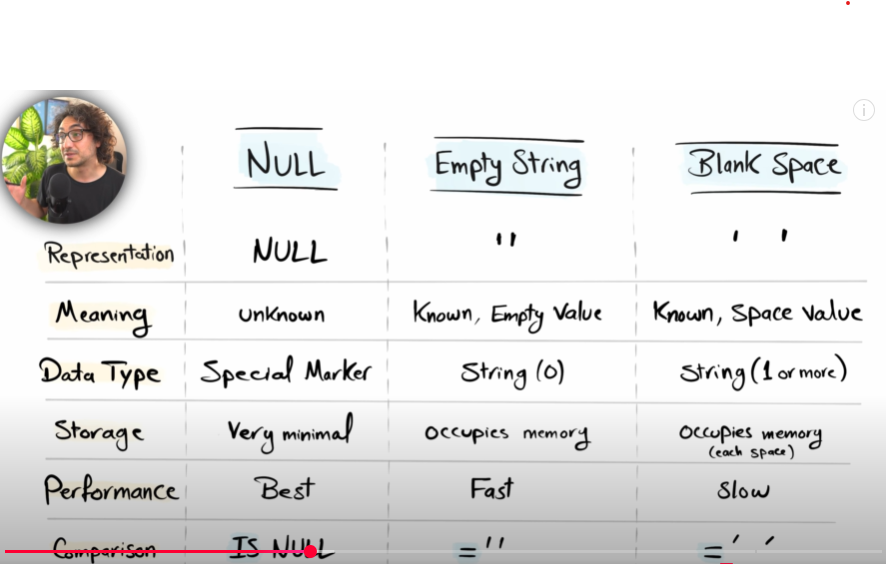 NULL Empty String Blank Space
Representation NULL '' ' '
Meaning unknown Known, Empty Value Known, Space Value
Data Type Special Marker String (0) String (1 or more)
Storage Very minimal occupies memory occupies memory
(each space)
Performance Best Fast Slow
Comparison IS NULL = '' = ' '